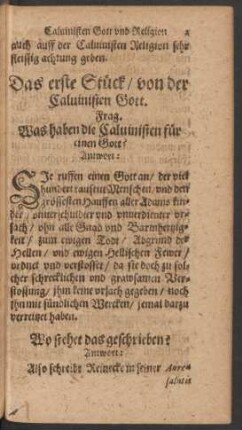 Caluinisten Gott vnd Religion
auch auff der Caluinisten Religion sehr
fleissig achtung geben.
Das erste Stück / von der
Caluinisten Gott.
Frag.
Was haben die Caluinisten für
einen Gott?
Antwort:
SIe ruffen einen Gott an / der viel
hundert tausent Menschen / vnd den
grössesten Hauffen aller Adams kin-
der / vnuerschulder vnd vnuerdienter vr-
sach / ohn alle Gnad vnd Barmhertzig-
keit / zum ewigen Todt / Abgrund der
Hellen / vnd ewigen Hellischen Fewer /
ordnet vnd verstosset / da sie doch zu sol-
cher schrecklichen vnd grawsamen Ver-
stossung / jhm keine vrsach gegeben / noch
jhn mit sündlichen Wercken / jemal darzu
verreitzet haben.
Wo stehet das geschrieben?
Antwort:
Also schreibt Reineck in seiner Aure-